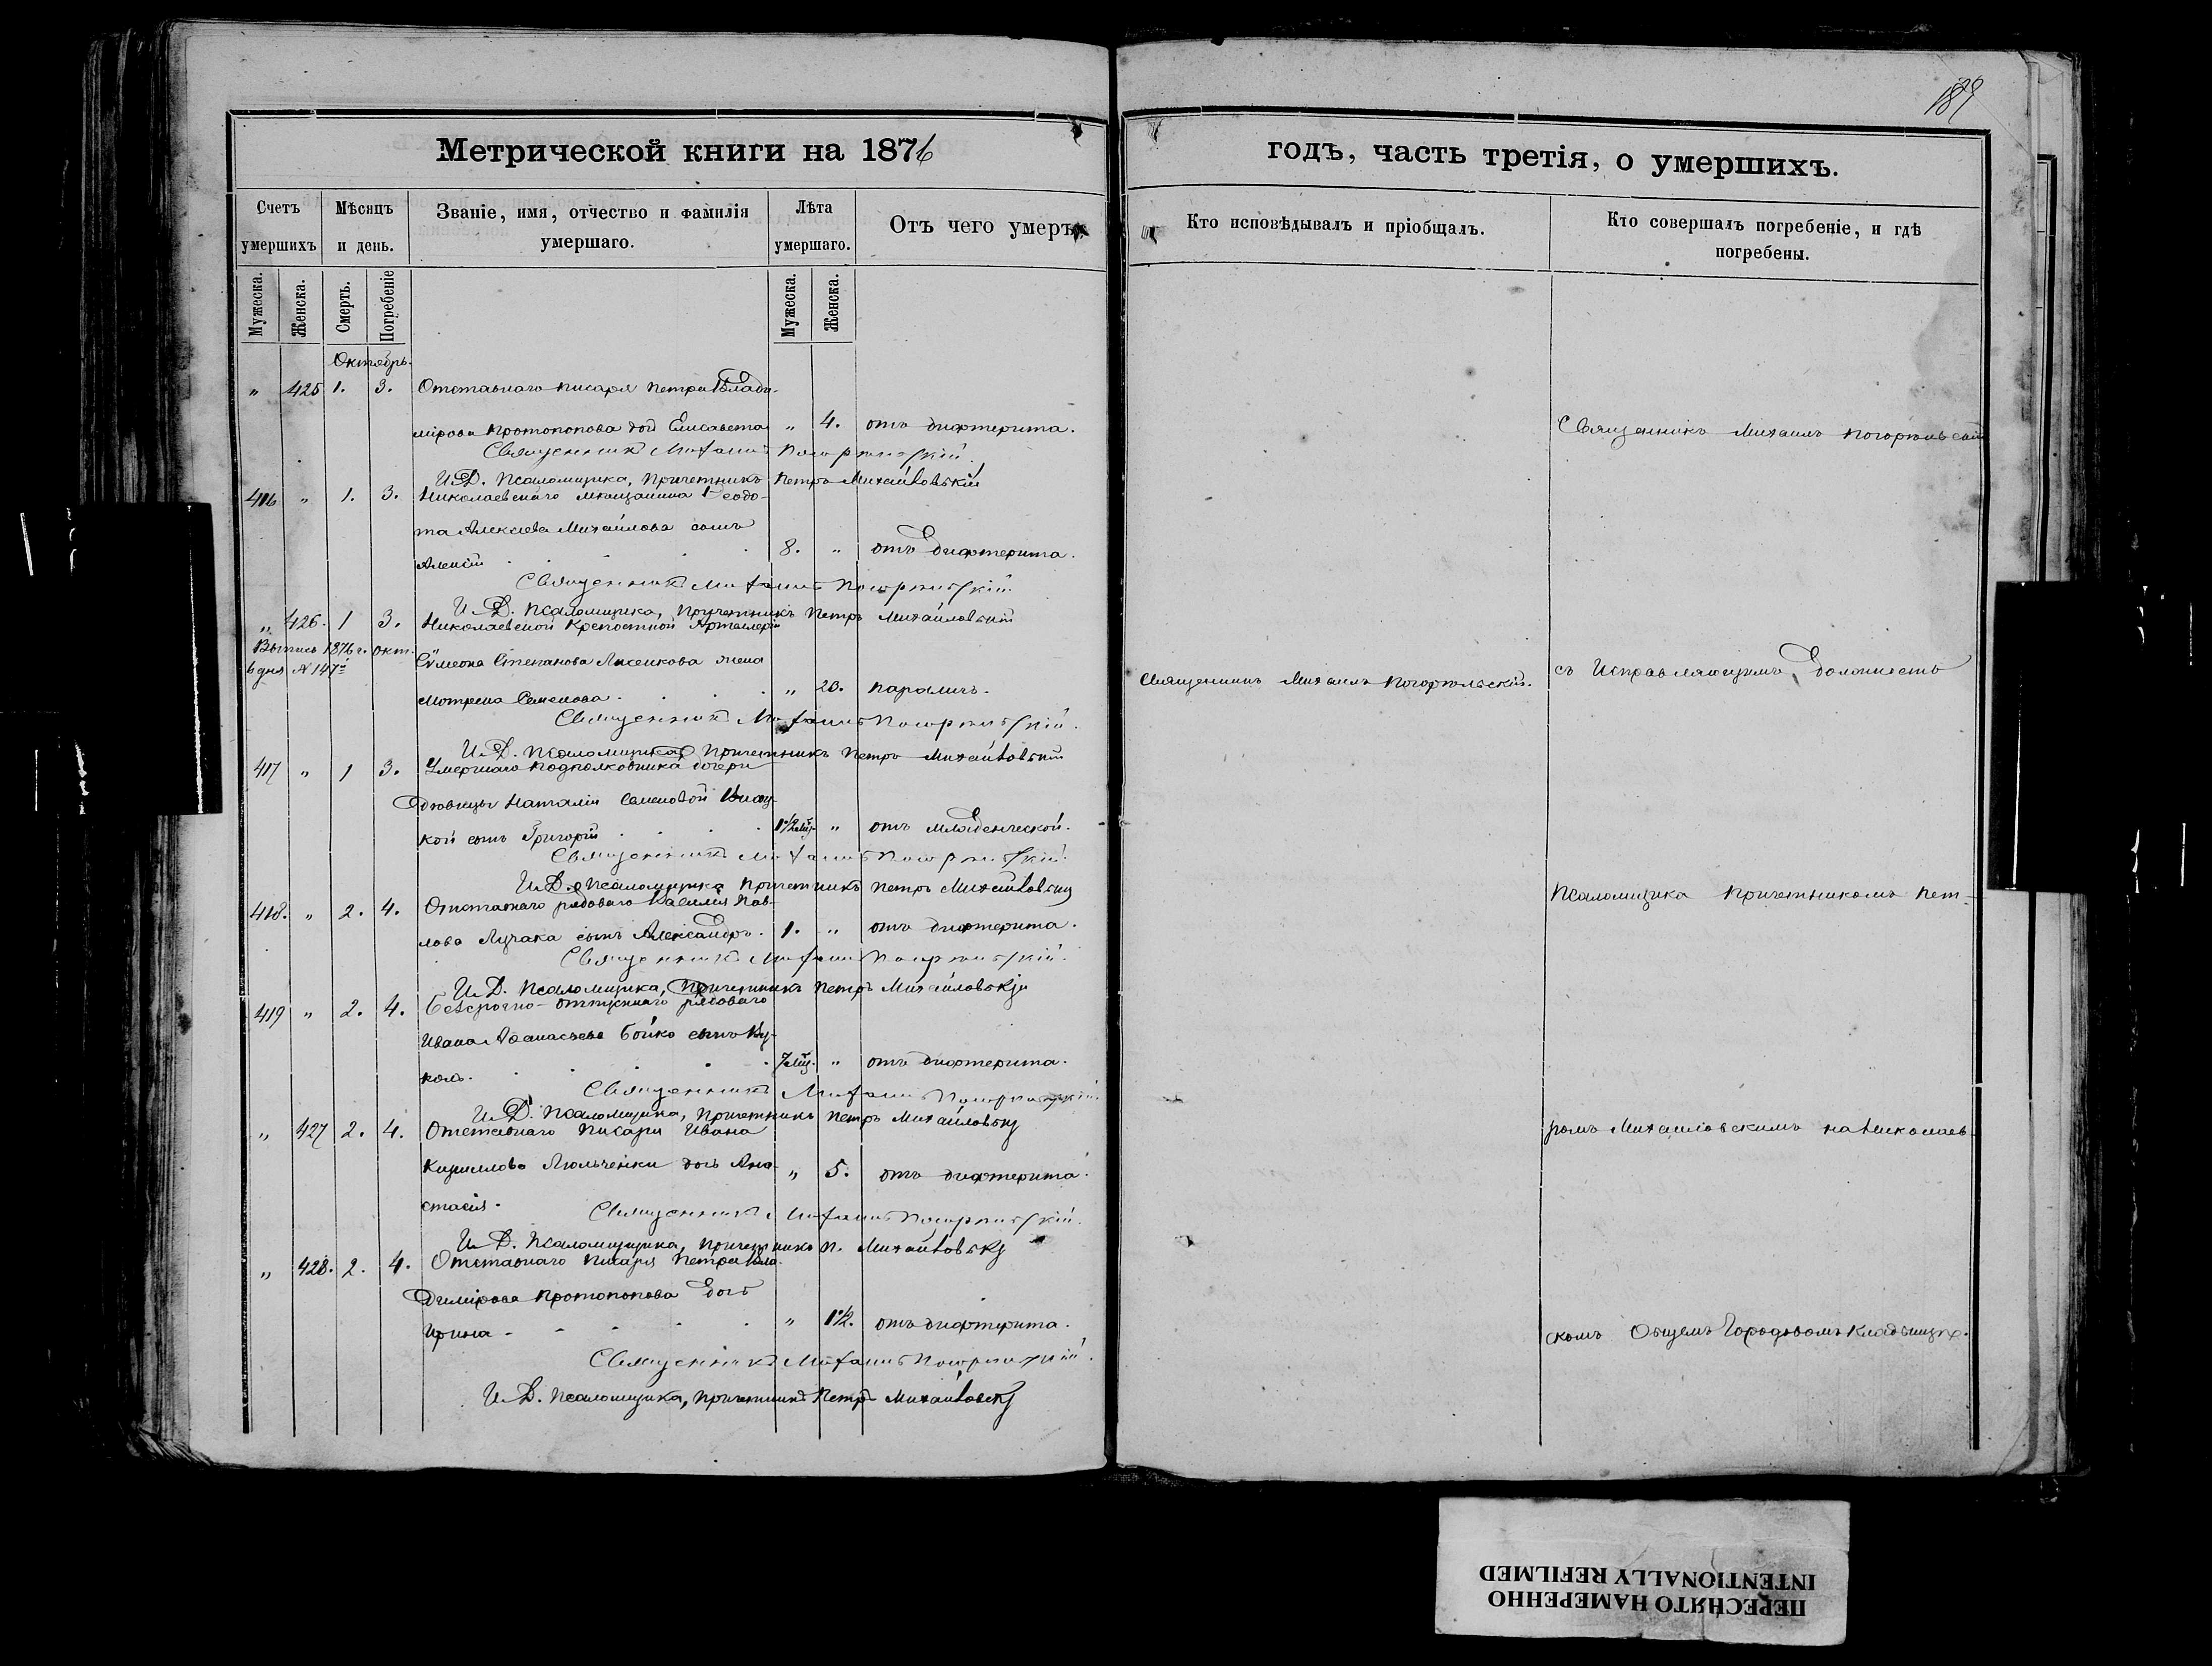 189
Метрической книги на 1876
годъ, часть третія, о умершихъ.
Счетъ умершихъ
Мѣсяцъ и день.
Званіе, имя, отчество и фамилія умершаго.
Лѣта умершаго.
Отъ чего умеръ
Кто исповѣдывалъ и пріобщалъ.
Кто совершалъ погребеніе, и гдѣ погребены.
Мужеска. Женска. Смерть. Погребеніе Мужеска. Женска.
Октябрь.
" 425 1. 3. Отставнаго писаря Петра Влади-
мірова Протопопова дочь Елисавета " 4. отъ дифтерита.
Священникъ Михаилъ Погорѣльскій.
И. Д. Псаломщика, Причетникъ Петръ Михайловскій
416 " 1. 3. Николаевскаго мѣщанина Ѳеодо-
та Алексѣева Михайлова сынъ
Алексій 8. " отъ дифтерита.
Священникъ Михаилъ Погорѣльскій
И. Д. Псаломщика, Причетникъ Петръ Михайловскій
" 426. 1 3. Николаевской Крепостной Артиллеріи
Выпись 1876 г. окт.
6 дня № 147
Сѵмеона Степанова Лисенкова жена
Мотрена Семенова. " 20. параличъ.
Священникъ Михаилъ Погорѣльскій.
И. Д. Псаломщика, Причетникъ Петръ Михайловскій
417 " 1 3. Умершаго Подполковника дочери
дѣвицы Наталіи Семеновой
кой сынъ Григорій 1 1/2 мѣс. " отъ младенческой.
Священникъ Михаилъ Погорѣльскій.
И. Д. Псаломщика Причетникъ Петръ Михайловскій
418. " 2. 4. Отставнаго рядоваго Василія Пав-
лова Лучака сынъ Александръ. 1. " отъ дифтерита.
Священникъ Михаилъ Погорѣльскій.
И. Д. Псаломщика, Причетникъ Петръ Михайловскій
419 " 2. 4. Безсрочно-отпускнаго рядоваго
Ивана Аѳанасьева Бойко сынъ Ву-
колъ. 7 мѣс. " отъ дифтерита.
Священникъ Михаилъ Погорѣльскій.
И. Д. Псаломщика, Причетникъ Петръ Михайловскій
" 427 2. 4. Отставнаго писаря Ивана
Кириллова Люльченки дочь Ана- " 5. отъ дифтерита.
стасія.
Священникъ Михаилъ Погорѣльскій.
И. Д. Псаломщика, Причетникъ П. Михайловскій
" 428. 2. 4. Отставнаго писаря Петра Вла-
димірова Протопопова дочь
Ирина " 1 1/2. отъ дифтерита.
Священникъ Михаилъ Погорѣльскій.
И. Д. Псаломщика, Причетникъ Петръ Михайловскій
Священникъ Михаилъ Погорѣльскій.
Священникъ Михаилъ Погорѣльскій
съ Исправляющимъ Должность
Псаломщика Причетникомъ Пет-
ромъ Михайловскимъ на Николаев-
скомъ Общемъ Городовомъ Кладбищѣ.
ПЕРЕСНЯТО НАМЕРЕННО
INTENTIONALLY REFILMED